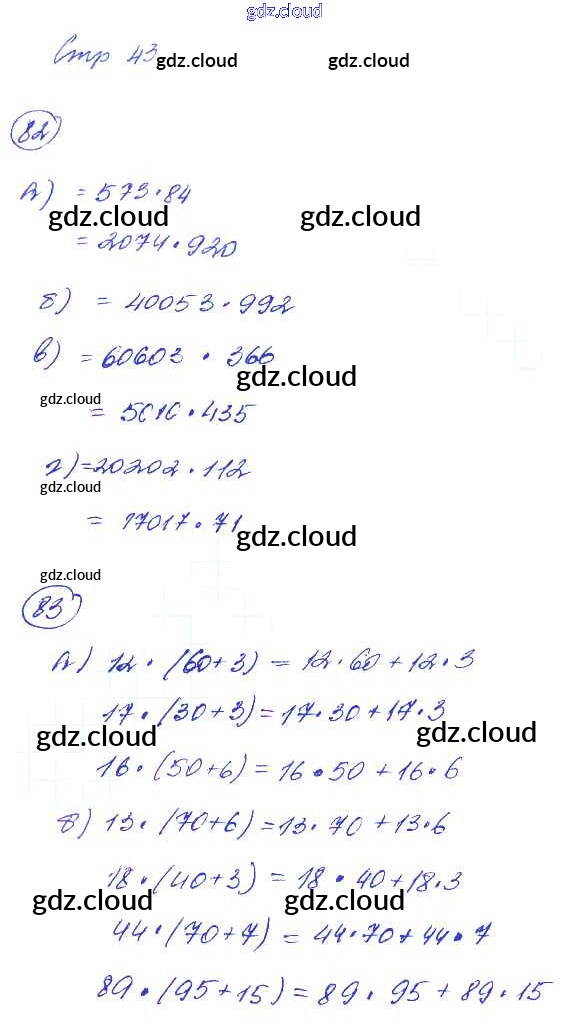 gdz.cloud
Стр 43 gdz.cloud gdz.cloud
82
а) = 573·84
gdz.cloud gdz.cloud
= 2074·920
б) = 40053·992
в) = 60603·366
gdz.cloud
gdz.cloud
= 5616·435
г) = 20202·112
gdz.cloud
= 17017·71
gdz.cloud
gdz.cloud
83
а) 12·(60+3) = 12·60+12·3
17·(30+3) = 17·30+17·3
gdz.cloud gdz.cloud
16·(50+6) = 16·50+16·6
б) 13·(70+6) = 13·70+13·6
18·(40+3) = 18·40+18·3
gdz.cloud gdz.cloud
44·(70+7) = 44·70+44·7
gdz.cloud gdz.cloud
89·(95+15) = 89·95+89·15